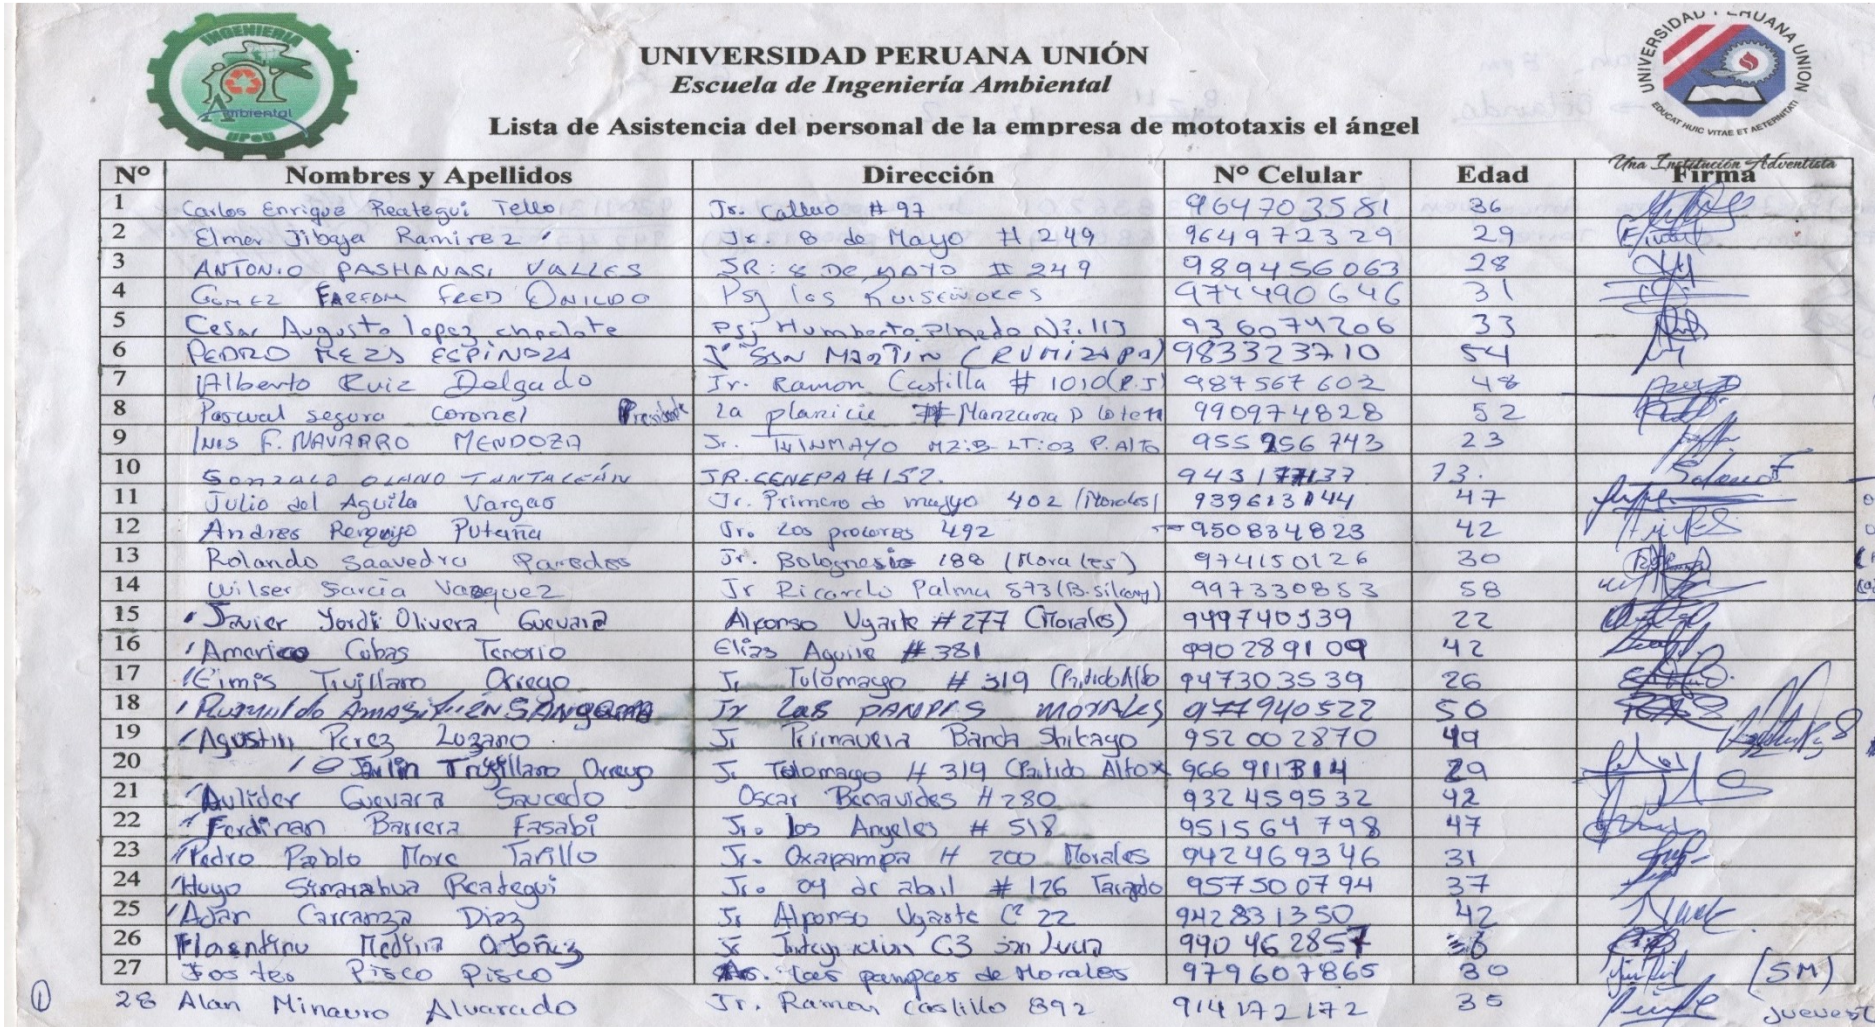 INGENIERIA
Ambiental
UPeU
UNIVERSIDAD PERUANA UNIÓN
Escuela de Ingeniería Ambiental
Lista de Asistencia del personal de la empresa de mototaxis el ángel
UNIVERSIDAD PERUANA UNION
EDUCAT HUIC VITAE ET AETERNITATI
Una Institución Adventista
N° Nombres y Apellidos Dirección N° Celular Edad Firma
1 Carlos Enrique Reategui Tello Jr. Callao # 97 964703581 36
2 Elmer Jibaja Ramirez Jr. 8 de Mayo # 249 964972329 29
3 ANTONIO PASHANASI VALLES JR: 8 DE MAYO # 249 989456063 28
4 GOMEZ FRED Psj los RUISEÑORES 974490646 31
5 Cesar Augusto lopez Psj Humberto Pinedo N°. 113 936074206 33
6 PEDRO MEZA ESPINOZA Jr SAN MARTIN (RUMIZAPA) 983323710 54
7 Alberto Ruiz Delgado Jr. Ramon Castilla # 1010 (P.J) 987567602 48
8 Pascual segura coronel Presidente la planicie # Manzana D lote 990974828 52
9 INIS F. NAVARRO MENDOZA Jr. MZ:B LT:03 P. Alto 955256743 23
10 GONZALO OLANO TANTALEÁN JR. CENEPA # 152. 73.
11 Julio del Aguila Vargas Jr. Primero de mayo 402 (Morales) 939613144 47
12 Andres Jr. Los proceres 492 950834823 42
13 Rolando Saavedra Paredes Jr. Bolognesi 188 (Morales) 974150126 30
14 Wilser Garcia Vasquez Jr Ricardo Palma 573 997330853 58
15 Javier Yordi Olivera Guevara Alfonso Ugarte # 277 (Morales) 949740339 22
16 Americo Cubas Tenorio Elias Aguirre # 381 990289109 42
17 Eimis Trujillano Orrego Jr Tulomayo # 319 (Partido Alto 947303539 26
18 Rumualdo AMASIFUEN SANGAMA Jr Las PAMPAS MORALES 977940522 50
19 Agustin Perez Lozano Jr Primavera Banda Shilcayo 952002870 49
20 Trujillano Orrego Jr Tolomayo # 319 (Partido Alto 966911314 29
21 Aulider Guevara Saucedo Oscar Benavides # 280 932459532 42
22 Ferdinan Barrera Fasabi Jr. los Angeles # 518 951564798 47
23 Pedro Pablo More Tarillo Jr. Oxapampa # 200 Morales 942469346 31
24 Hugo Simarahua Reategui Jr. 04 de abril # 126 957500794 37
25 Adan Carranza Diaz Jr Alfonso Ugarte C° 22 942831350 42
26 Florentino Medina Ordoñez Jr Integracion C3 990462857 36
27 Pisco Pisco las pampas de Morales 979607865 30 (SM)
28 Alan Minauro Alvarado Jr. Ramon Castillo 892 914172172 35 jueves
1